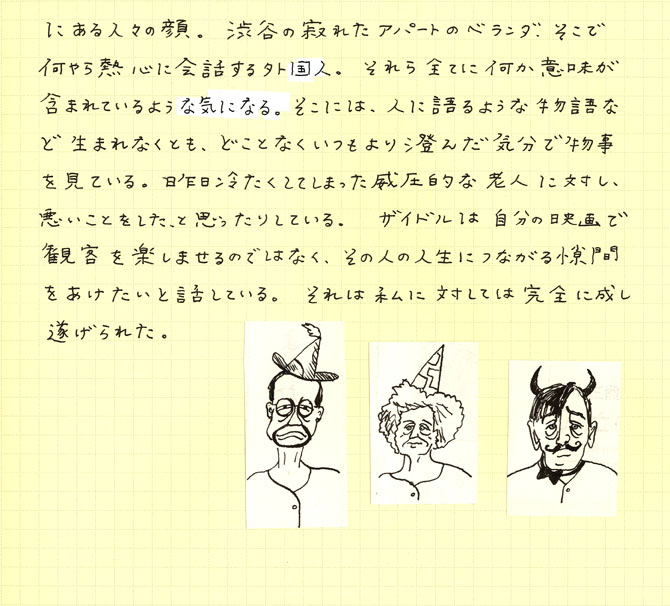 にある人々の顔。 渋谷の寂れたアパートのベランダ、そこで
何やら熱心に会話する外国人。 それら全てに何か意味が
含まれているような気になる。そこには、人に語るような物語な
ど生まれなくとも、どことなくいつもより澄んだ気分で物事
を見ている。昨日冷たくしてしまった威圧的な老人に対し、
悪いことをした、と思ったりしている。 ザイドルは自分の映画で
観客を楽しませるのではなく、その人の人生につながる隙間
をあけたいと話している。 それは私に対しては完全に成し
遂げられた。